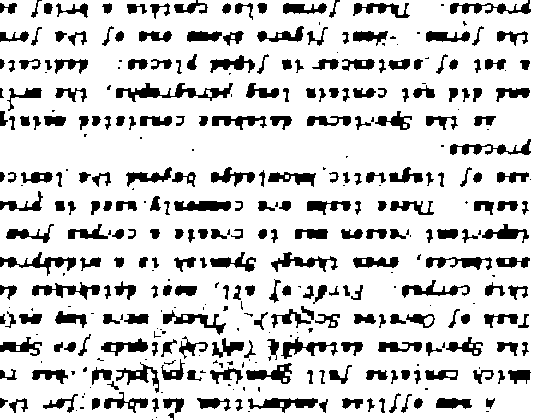 A new offline handwritten database for the
which contains full Spanish sentences, has re
the Spartacus database (which stands for Spa
Task of Cursive Script). There were two main
this corpus. First of all, most databases do
sentences, even though Spanish is a widesprea
important reason was to create a corpus from
tasks. These tasks are commonly used in prac
use of linguistic knowledge beyond the lexico
process.
As the Spartacus database consisted mainly
and did not contain long paragraphs, the writ
a set of sentences in fixed places: dedicate
the forms. Next figure shows one of the form
process. These forms also contain a brief se